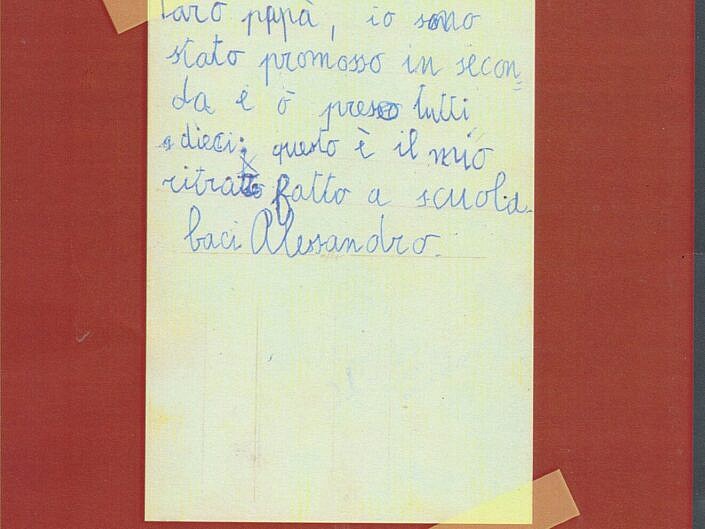 caro papà, io sono
stato promosso in secon=
da e ò preso tutti
dieci; questo è il mio
ritratto fatto a scuola.
baci Alessandro.